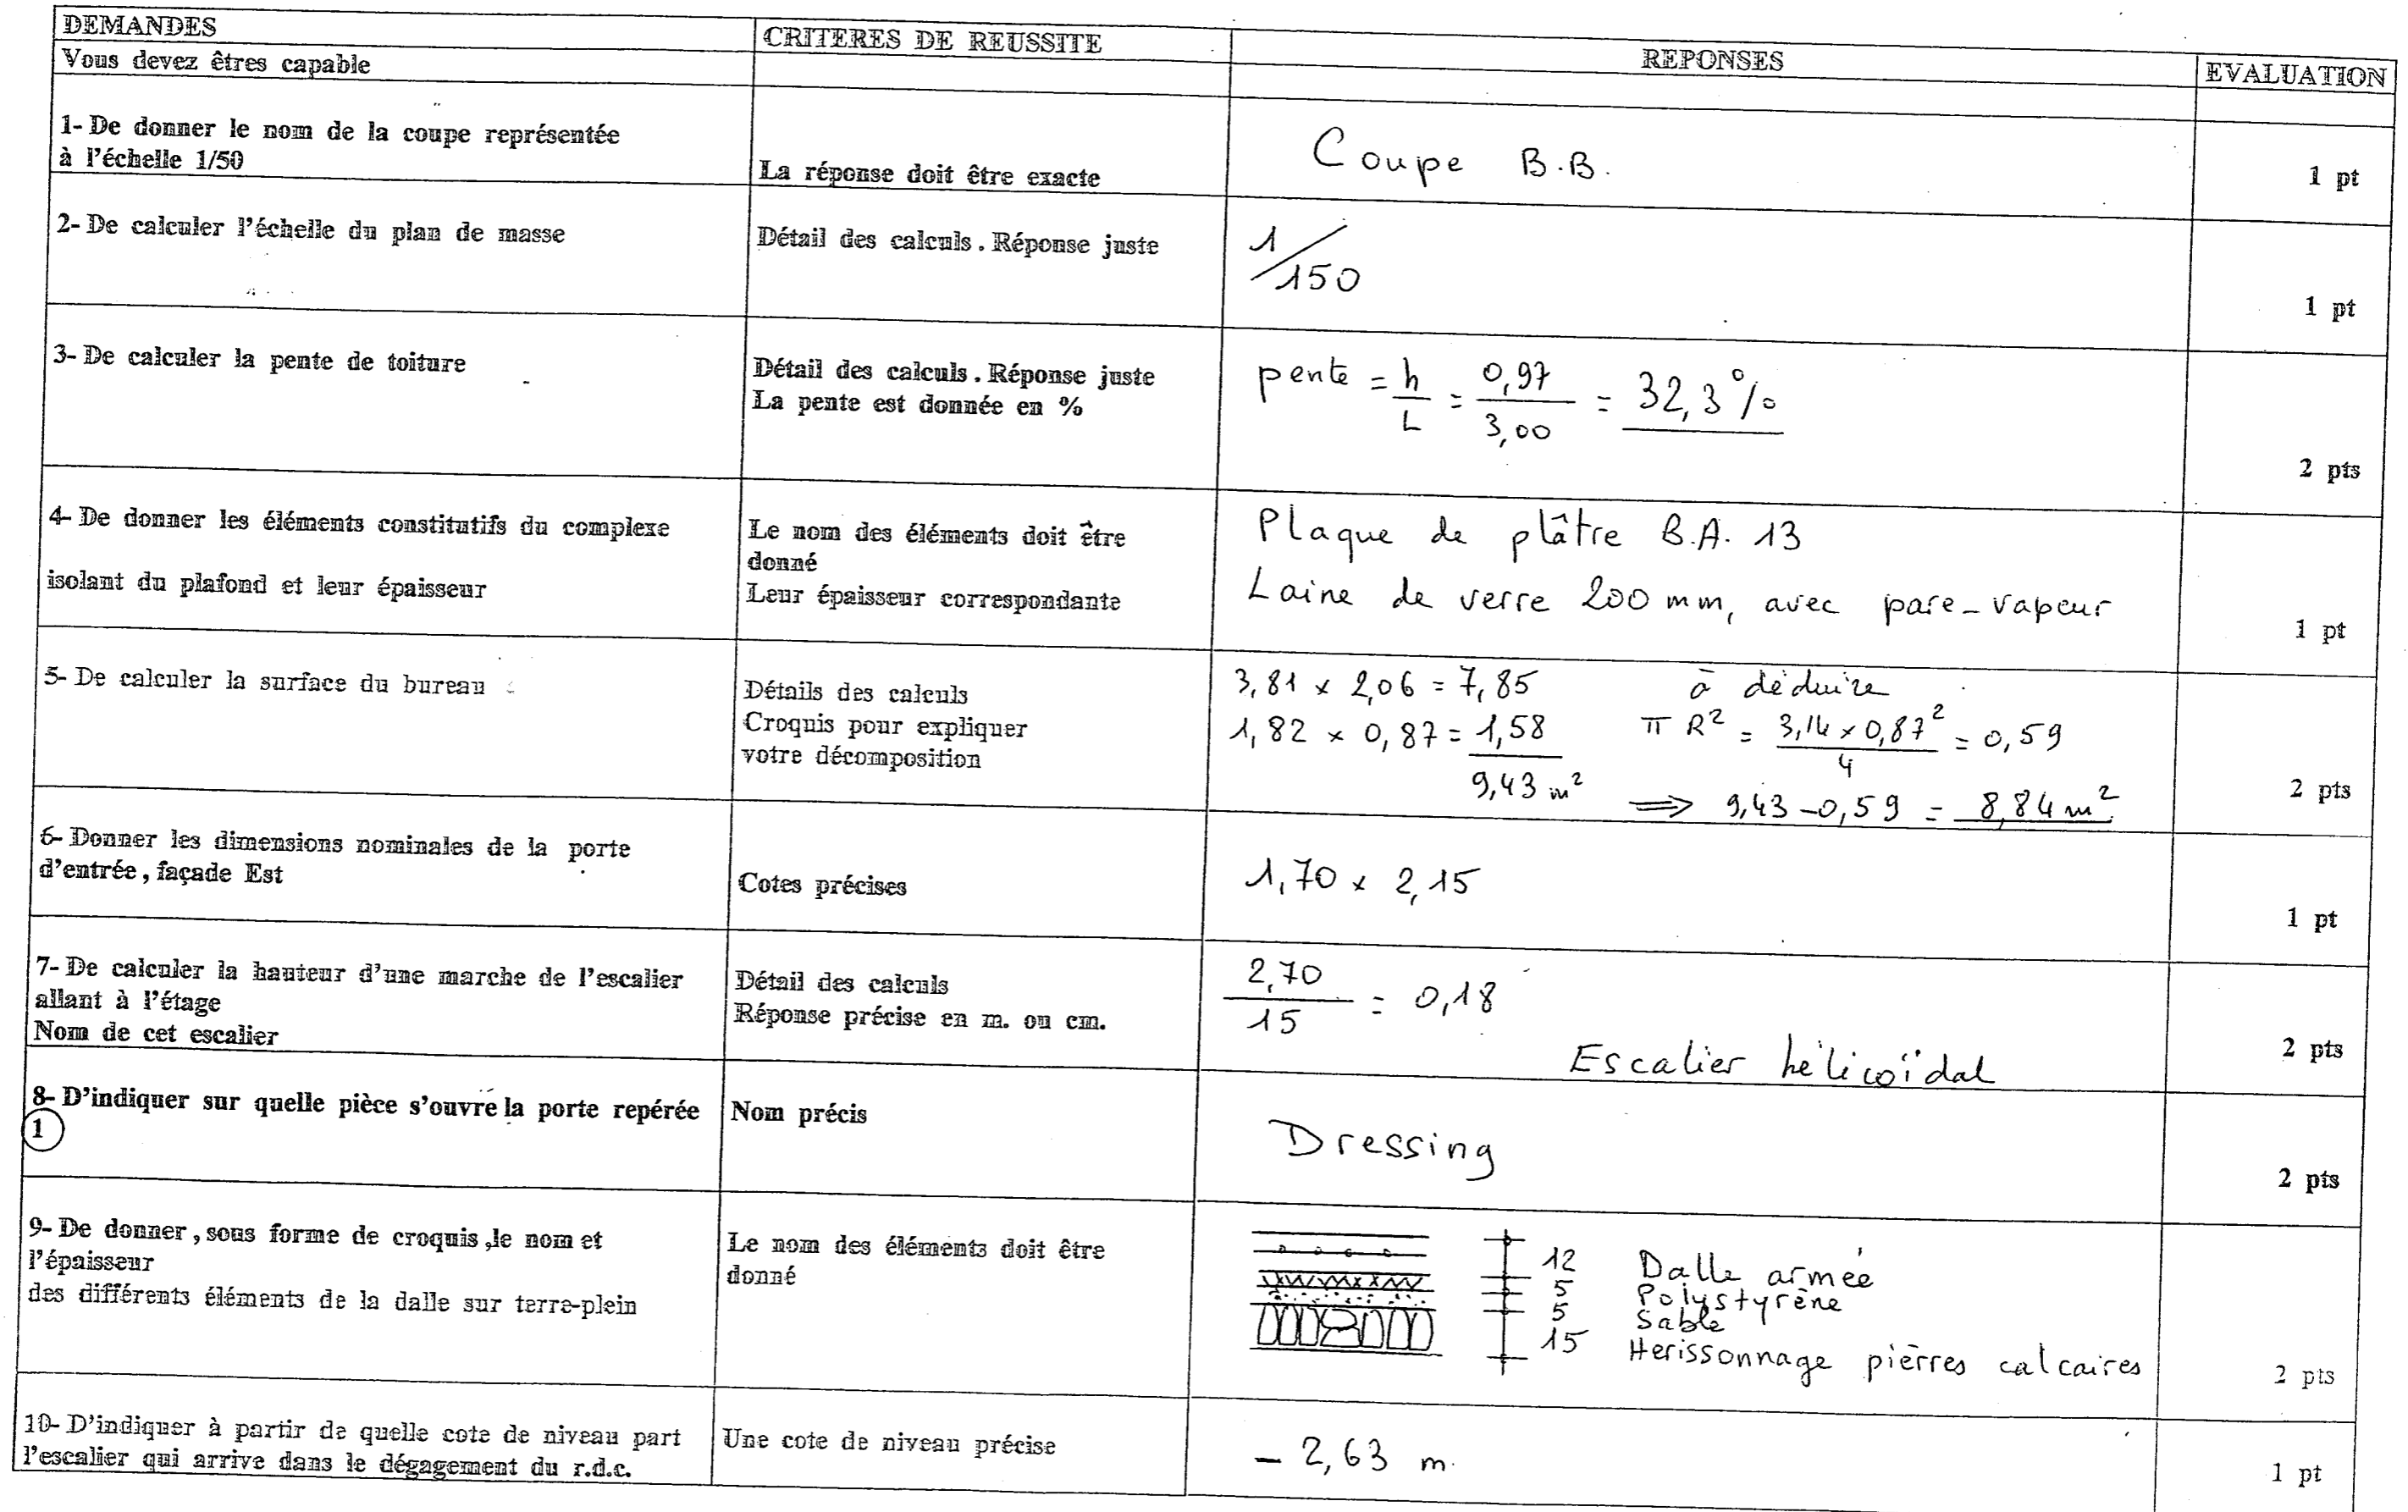 DEMANDES
CRITERES DE REUSSITE
REPONSES
EVALUATION
Vous devez êtres capable
1- De donner le nom de la coupe représentée
à l'échelle 1/50
La réponse doit être exacte
Coupe B.B.
1 pt
2- De calculer l'échelle du plan de masse
Détail des calculs. Réponse juste
1/150
1 pt
3- De calculer la pente de toiture
Détail des calculs. Réponse juste
La pente est donnée en %
pente = h/L = 0,97/3,00 = 32,3%
2 pts
4- De donner les éléments constitutifs du complexe
isolant du plafond et leur épaisseur
Le nom des éléments doit être
donné
Leur épaisseur correspondante
Plaque de plâtre B.A. 13
Laine de verre 200 mm, avec pare-vapeur
1 pt
5- De calculer la surface du bureau
Détails des calculs
Croquis pour expliquer
votre décomposition
3,81 x 2,06 = 7,85
1,82 x 0,87 = 1,58
9,43 m²
à déduire
π R² = 3,14 x 0,87²/4 = 0,59
⟹ 9,43 - 0,59 = 8,84 m²
2 pts
6- Donner les dimensions nominales de la porte
d'entrée, façade Est
Cotes précises
1,70 x 2,15
1 pt
7- De calculer la hauteur d'une marche de l'escalier
allant à l'étage
Nom de cet escalier
Détail des calculs
Réponse précise en m. ou cm.
2,70/15 = 0,18
Escalier hélicoïdal
2 pts
8- D'indiquer sur quelle pièce s'ouvre la porte repérée
1
Nom précis
Dressing
2 pts
9- De donner, sous forme de croquis, le nom et
l'épaisseur
des différents éléments de la dalle sur terre-plein
Le nom des éléments doit être
donné
12 Dalle armée
5 Polystyrène
5 Sable
15 Herissonnage pièrres calcaires
2 pts
10- D'indiquer à partir de quelle cote de niveau part
l'escalier qui arrive dans le dégagement du r.d.c.
Une cote de niveau précise
- 2,63 m.
1 pt